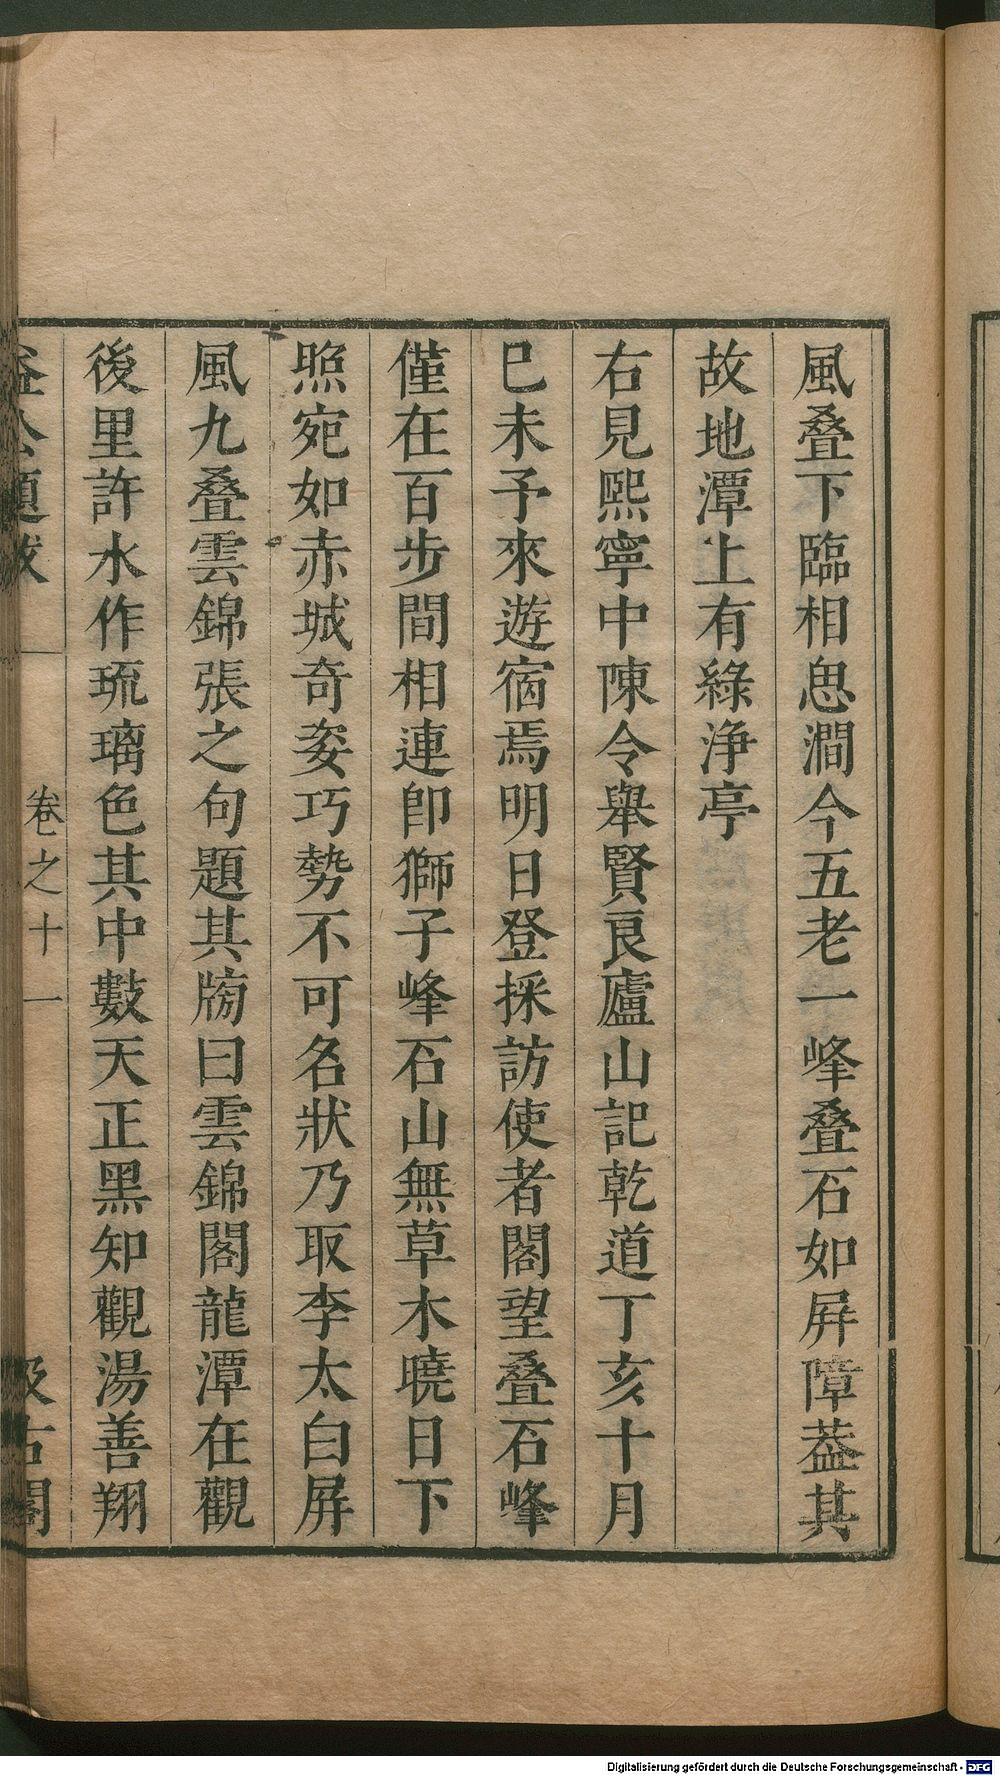 風叠下臨相思澗今五老一峰叠石如屛障葢其
故地潭上有綠浄亭
右見熙寧中陳令舉賢良廬山記乾道丁亥十月
巳未予來遊宿焉明日登採訪使者閣望叠石峰
僅在百步間相連卽獅子峰石山無草木曉日下
照宛如赤城奇姿巧勢不可名狀乃取李太白屛
風九叠雲錦張之句題其牓曰雲錦閣龍潭在觀
後里許水作琉璃色其中數天正黑知觀湯善翔
益公題跋
卷之十一
汲古閣
Digitalisierung gefördert durch die Deutsche Forschungsgemeinschaft - DFG